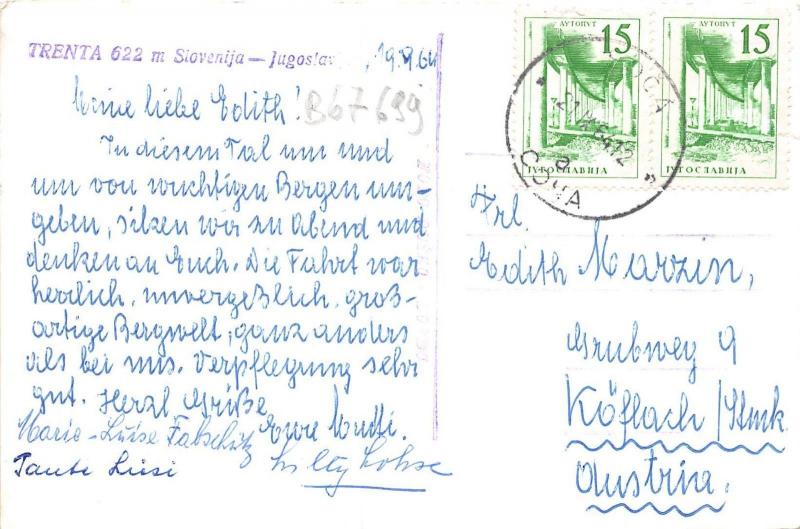 TRENTA 622 m Slovenija — Jugoslav
Meine liebe Edith!
B67699
In diesem Tal um und
um von wuchtigen Bergen um-
geben, sitzen wir zu Abend und
denken an Euch. Die Fahrt war
herrlich, unvergeßlich, groß-
artige Bergwelt, ganz anders
als bei uns. Verpflegung sehr
gut. Herzl Grüße
Eure Mutti.
Marie-Luise
Tante Liesi
Lohse
АУТОПУТ 15
ЈУГОСЛАВИЈА
АУТОПУТ 15
ЈУГОСЛАВИЈА
СОЧА
Frl.
Edith Marzin,
Grubweg 9
Köflach/Stmk
Austria.